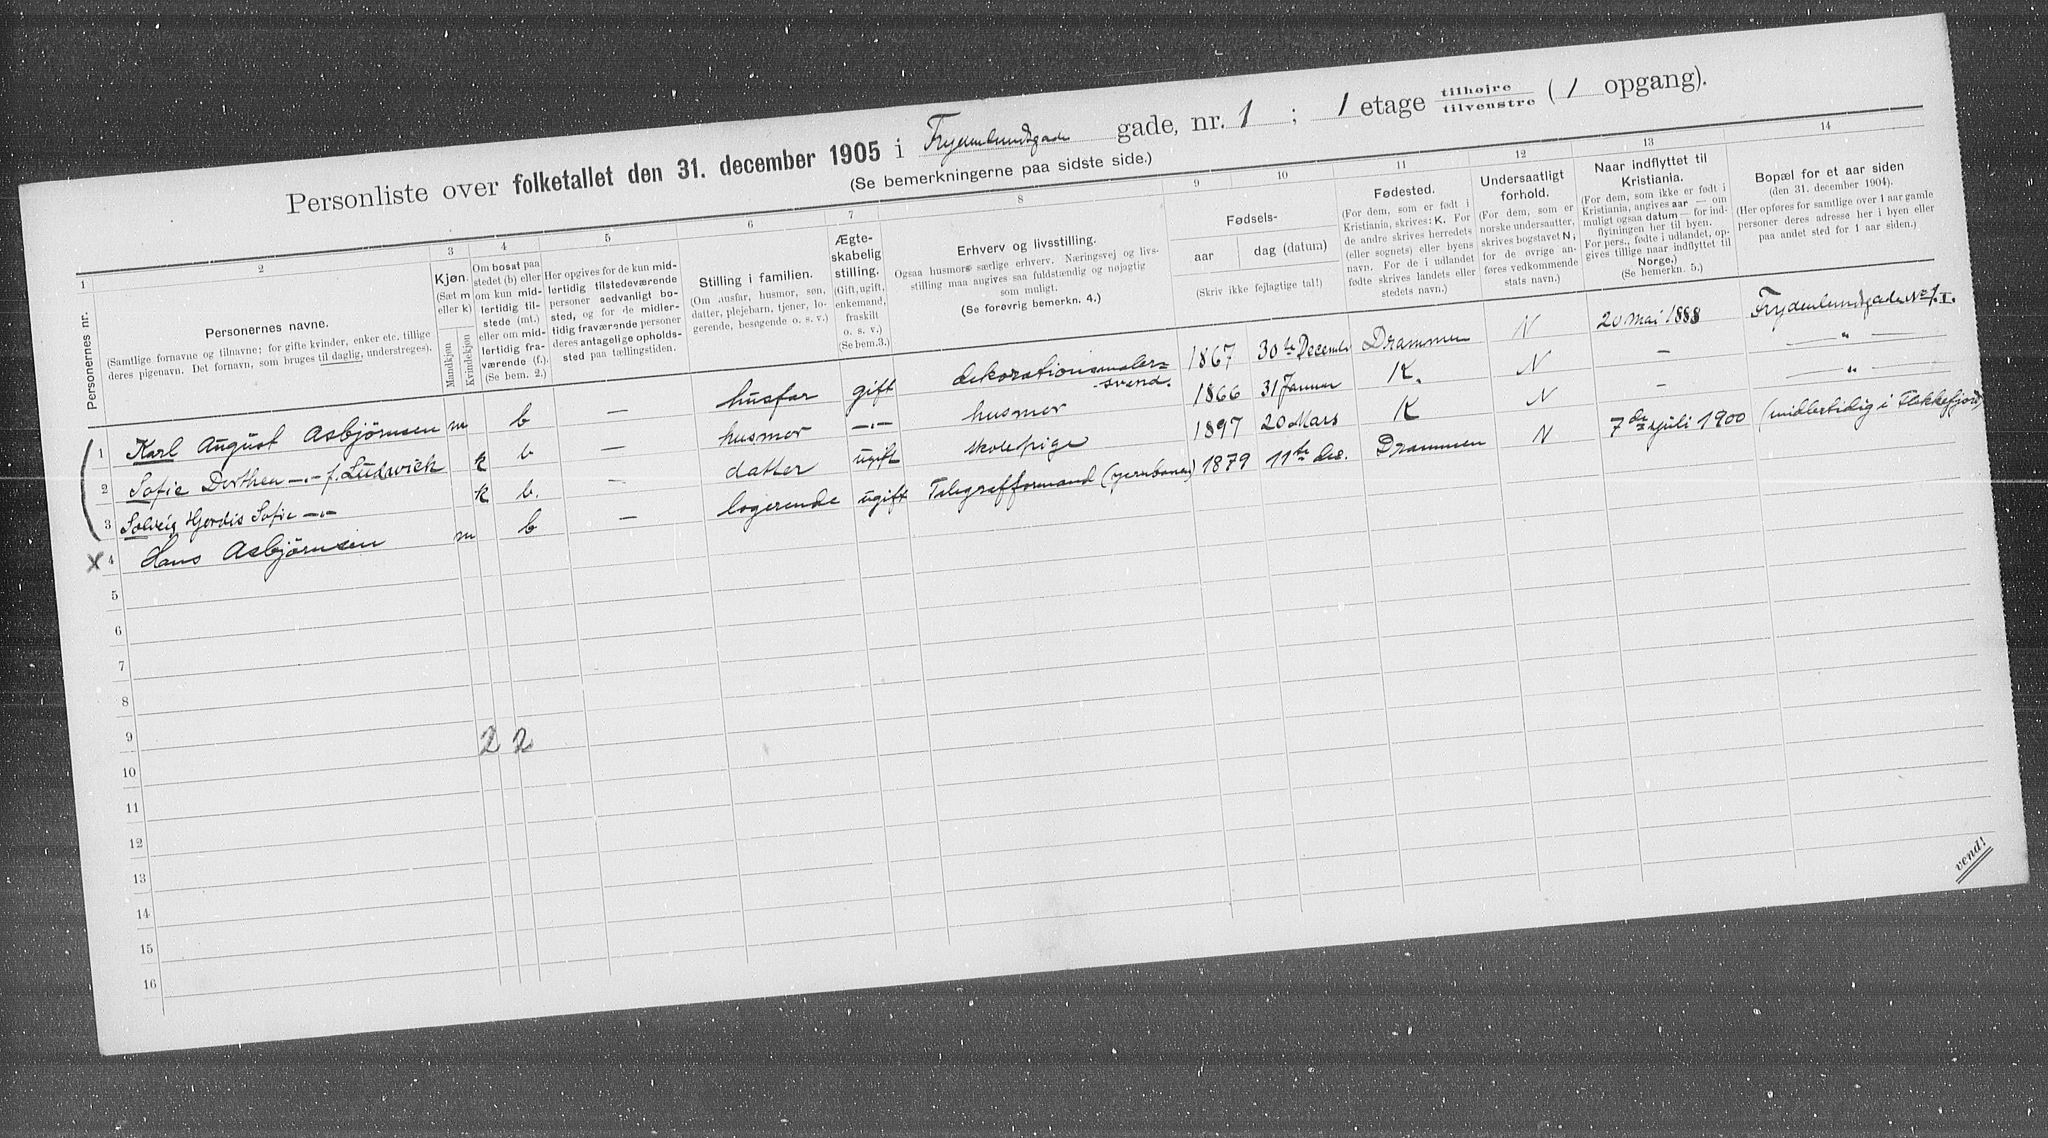 Personliste over folketallet den 31. december 1905 i Frydenlundsgade gade, nr. 1 ; 1 etage tilhøjre tilvenstre ( 1 opgang).
(Se bemerkningerne paa sidste side.)
1 2 3 4 5 6 7 8 9 10 11 12 13 14
Personernes nr.
Personernes navne.
(Samtlige fornavne og tilnavne; for gifte kvinder, enker etc. tillige
deres pigenavn. Det fornavn, som bruges til daglig, understreges).
Kjøn.
(Sæt m
eller k)
Mandkjøn
Kvindekjøn
Om bosat paa
stedet (b) eller
om kun mid-
lertidig til-
stede (mt.)
eller om mid-
lertidig fra-
værende (f.).
(Se bem. 2.)
Her opgives for de kun mid-
lertidig tilstedeværende
personer sedvanligt bo-
sted, og for de midler-
tidig fraværende personer
deres antagelige opholds-
sted paa tællingstiden.
Stilling i familien.
(Om husfar, husmor, søn,
datter, plejebarn, tjener, lo-
gerende, besøgende o. s. v.)
Ægte-
skabelig
stilling.
(Gift, ugift,
enkemand,
fraskilt
o. s. v.)
(Se bem.3.)
Erhverv og livsstilling.
Ogsaa husmors særlige erhverv. Næringsvej og livs-
stilling maa angives saa fuldstændig og nøjagtig
som muligt.
(Se forøvrig bemerkn. 4.)
Fødsels-
aar
dag (datum)
(Skriv ikke fejlagtige tal!)
Fødested.
(For dem, som er født i
Kristiania, skrives: K. For
de andre skrives herredets
(eller sognets) eller byens
navn. For de i udlandet
fødte skrives landets eller
stedets navn.)
Undersaatligt
forhold.
(For dem, som er
norske undersaatter,
skrives bogstavet N;
for de øvrige an-
føres vedkommende
stats navn.)
Naar indflyttet til
Kristiania.
(For dem, som ikke er født i
Kristiania, angives aar — om
muligt ogsaa datum — for ind-
flytningen her til byen.
For pers., fødte i udlandet, op-
gives tillige naar indflyttet til
Norge.)
(Se bemerkn. 5.)
Bopæl for et aar siden
(den 31. december 1904).
(Her opføres for samtlige over 1 aar gamle
personer deres adresse her i byen eller
paa andet sted for 1 aar siden.)
1 Karl August Asbjörnsen m b — husfar gift dekorationsmaler-
svend. 1867 30te December Drammen N 20 mai 1888 Frydenlundsgade No 1. I.
2 Sofie Dorthea —„— f. Ludwick k b — husmor —„— husmor 1866 31 Januar K. N — — „ —
3 Solveig Hjordis Sofie —„— k b. — datter ugift skolepige 1897 20 Mars K N — — „ —
X 4 Hans Asbjörnsen m b — logerende ugift Telegrafformand (jernbanen) 1879 11te dec. Drammen N 7de juli 1900 (midlertidig i Flekkefjord)
5
6
7
8
9 2 2
10
11
12
13
14
15
16
vend!